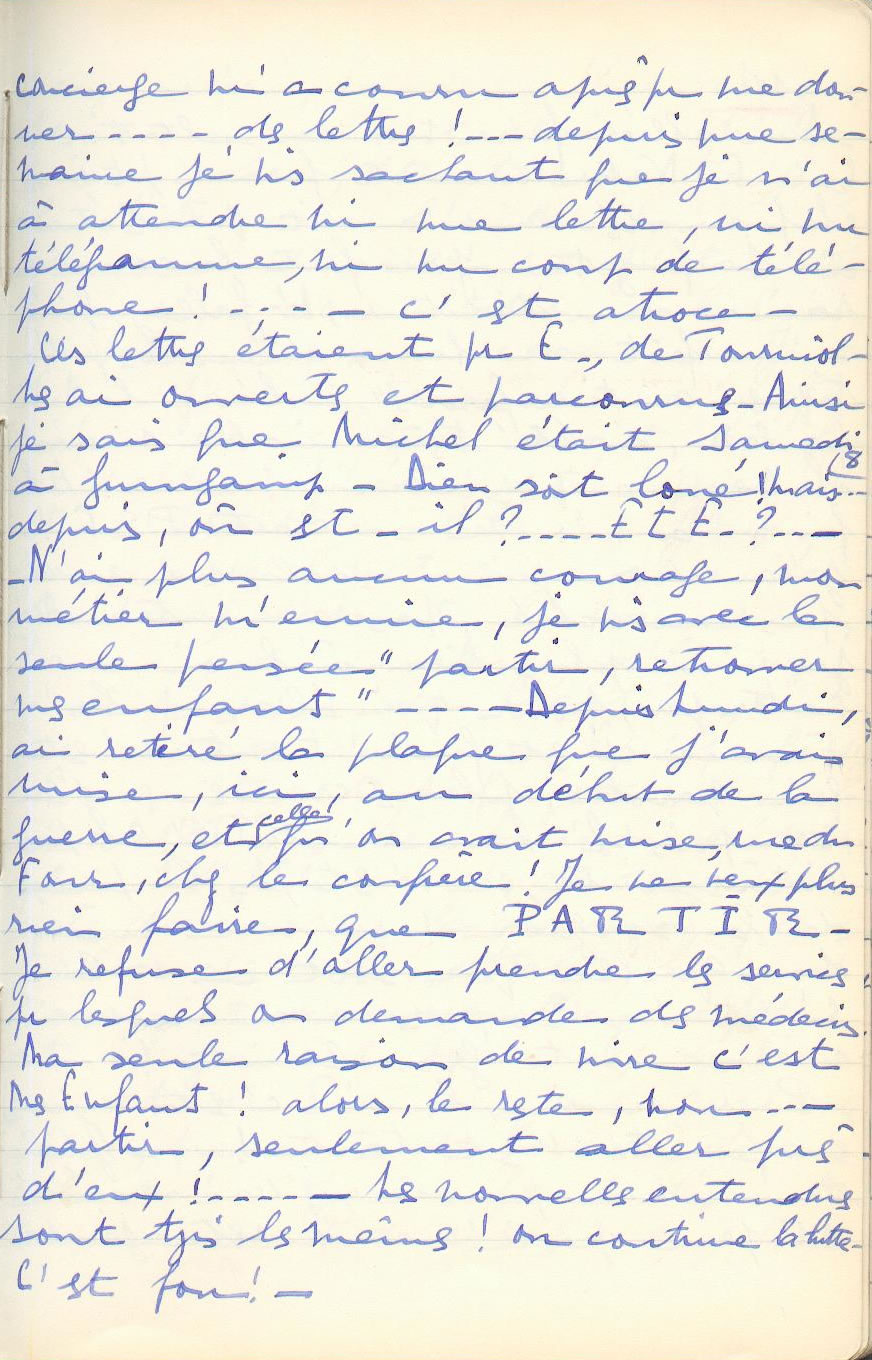 concierge m'a couru après pr me don-
ner ---- des lettres ! --- depuis une se-
maine je vis sachant que je n'ai
à attendre ni une lettre, ni un
télégramme, ni un coup de télé-
phone ! ---- c'est atroce -
Ces lettres étaient pr E -, de Tourniol -
les ai ouvertes et parcourues - Ainsi
je sais que Michel était Samedi
(8
à Guingamp - Dieu soit loué ! mais --
depuis, où est-il ? ---- Et E - ? ---
- N'ai plus aucun courage, mon
métier m'ennuie, je vis avec la
seule pensée " partir, retrouver
mes enfants " ---- Depuis lundi,
ai retiré la plaque que j'avais
mise, ici, au début de la
guerre, et celle qu'on avait mise, rue du
Four, chez le confrère ! Je ne veux plus
rien faire, que PARTIR -
Je refuse d'aller prendre les services,
pr lesquels on demande des médecins.
Ma seule raison de vivre c'est
Mes Enfants ! alors, le reste, non ---
partir, seulement aller près
d'eux ! ----- Les nouvelles entendues
sont tjrs les mêmes ! on continue la lutte -
C'est fou ! -